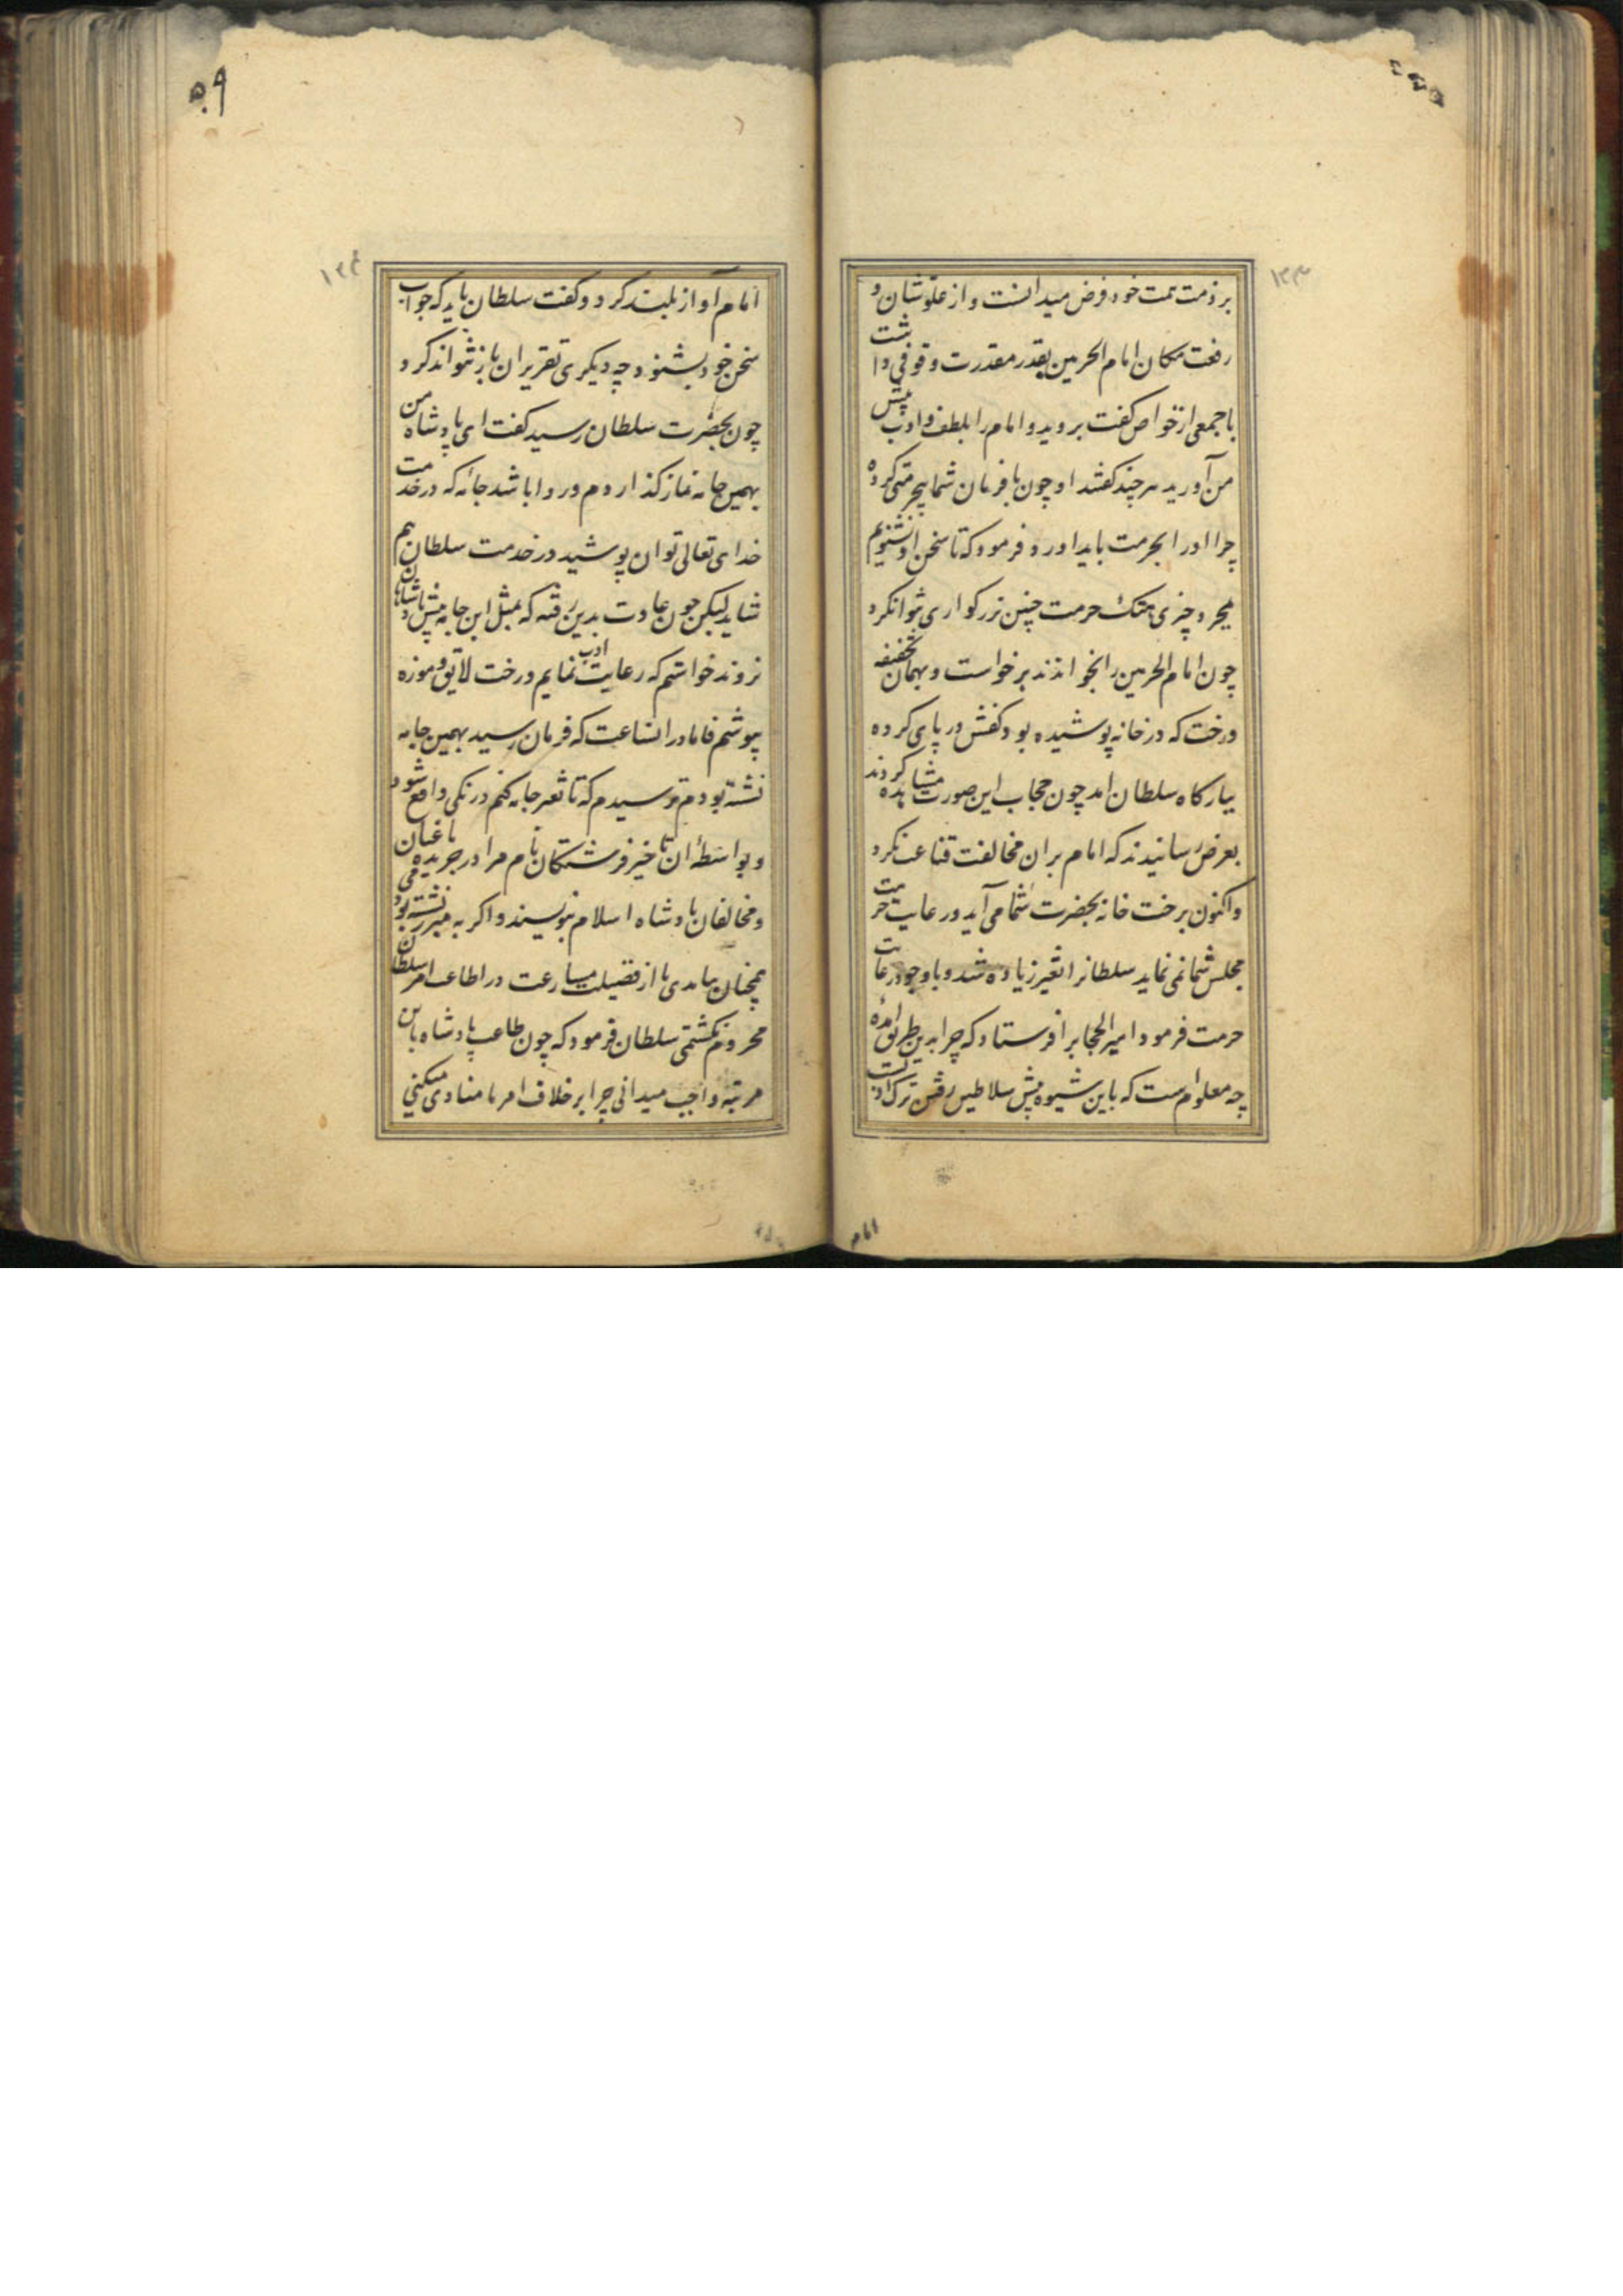 بر ذمت همت خود فرض میدانست و از علو شان و
رفعت مکان امام الحرمین بقدر مقدرت وقوفی داشت
با جمعی از خواص گفت بروید و امام را بلطف و ادب پیش
من آورید هرچند گفتند او چون با فرمان شما بیحرمتی کرده
چرا او را بحرمت باید اورد فرمود که تا سخن او نشنویم
بمجرد چیزی هتک حرمت چنین بزرکواری نتوانکرد
چون امام الحرمین را بخواندند برخواست و بهمان تخفیفه
و رخت که در خانه پوشیده بود کفش در پای کرده
ببارکاه سلطان امد چون حجاب این صورت مشاهده کردند
بعرض رسانیدند که امام بران مخالفت قناعت نکرد
و اکنون برخت خانه بحضرت شما می آید و رعایت حرمت
مجلس شما نمی نماید سلطانرا تغیر زیاده شد و باوجود رعایت
حرمت فرمود امیر الحجابرا فرستاد که چرا بدین طریق امدهٔ
چه معلوم است که باین شیوه پیش سلاطین رفتن ترک ادبست
امام
۱۳۳
۵۹
۱۳۴
امام آواز بلند کرد و کفت سلطان باید که جواب
سخن خود بشنود چه دیکری تقریر ان باز نتواند کرد
چون بحضرت سلطان رسید کفت ای پادشاه من
بهمین جامه نماز کذاردم و روا باشد جامهٔ که در خدمت
خدای تعالی توان پوشید در خدمت سلطان هم
شاید لیکن چون عادت بدین رفته که بمثل این جامه پیش پادشاهان
نروند خواستم که رعایت ادب نمایم و رخت لایق و موزه
بپوشم فاما در انساعت که فرمان رسید بهمین جامه
نشسته بودم ترسیدم که تا تغیر جامه کنم درنکی واقع شود
و بواسطهٔ ان تاخیر فرشتکان نام مرا در جریده باغیان
و مخالفان پادشاه اسلام بنویسند و اکر به میزر نشسته بودمی
همچنان بیامدی تا از فضیلت مسارعت در اطاعت امر سلطان
محروم نکشتمی سلطان فرمود که چون طاعت پادشاه باین
مرتبه واجب میدانی چرا بر خلاف امر ما منادی میکنی